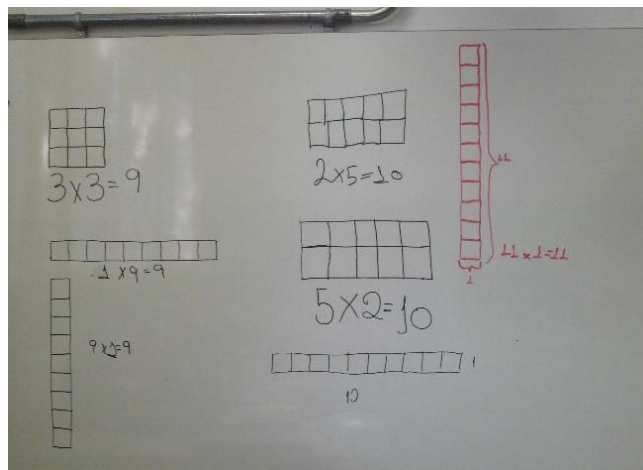 3x3=9
1x9=9
9x1=9
2x5=10
5x2=10
1
10
11
11x1=11
1